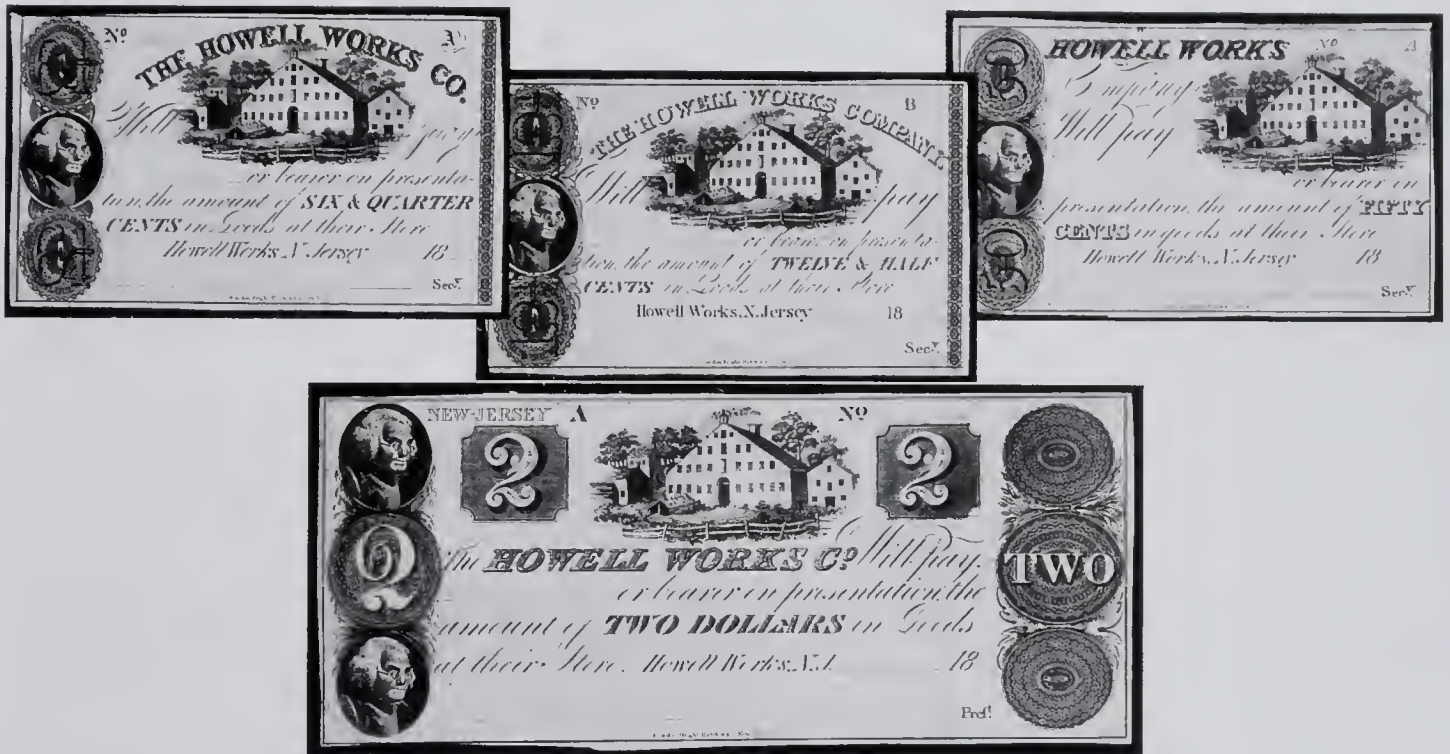 Nº A
THE HOWELL WORKS CO.
Will pay
or bearer on presenta-
tion, the amount of SIX & QUARTER
CENTS in Goods at their Store
Howell Works, N. Jersey 18
Secy.
Nº B
THE HOWELL WORKS COMPANY
Will pay
or bearer on presenta-
tion, the amount of TWELVE & HALF
CENTS in Goods at their Store
Howell Works, N. Jersey 18
Secy.
HOWELL WORKS Nº A
Company
Will pay
or bearer on
presentation, the amount of FIFTY
CENTS in goods at their Store
Howell Works, N. Jersey 18
Secy.
NEW-JERSEY A Nº
2 2
The HOWELL WORKS Cº. Will Pay
2 TWO
or bearer on presentation, the
amount of TWO DOLLARS in Goods
at their Store. Howell Works, N.J. 18
Prest.